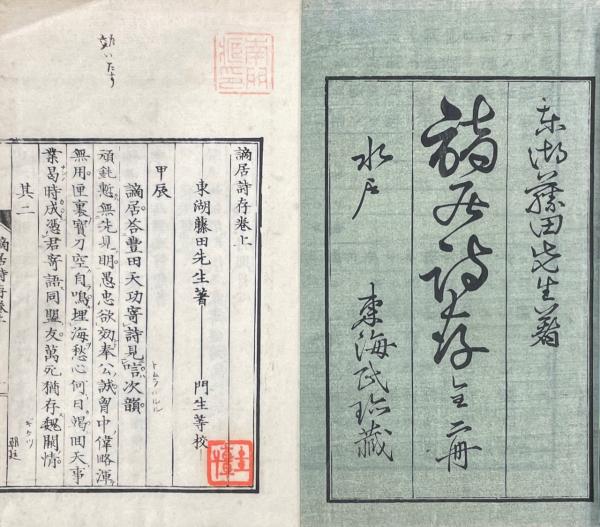 東湖藤田先生著
謫居詩存 全二冊
水戸
東海氏珍藏
謫居詩存卷上
東湖藤田先生著 門生等校
甲辰
謫居答豊田天功寄詩見唁次韻
頑鈍慙無先見明愚忠欲效奉公誠胷中偉略渾
無用匣裏寶刀空自鳴埋海愁心何日竭回天事
業曷時成憑君寄語同盟友萬死猶存魏闕情
其二
トムラハルル
ギケツ
謫居詩存卷上